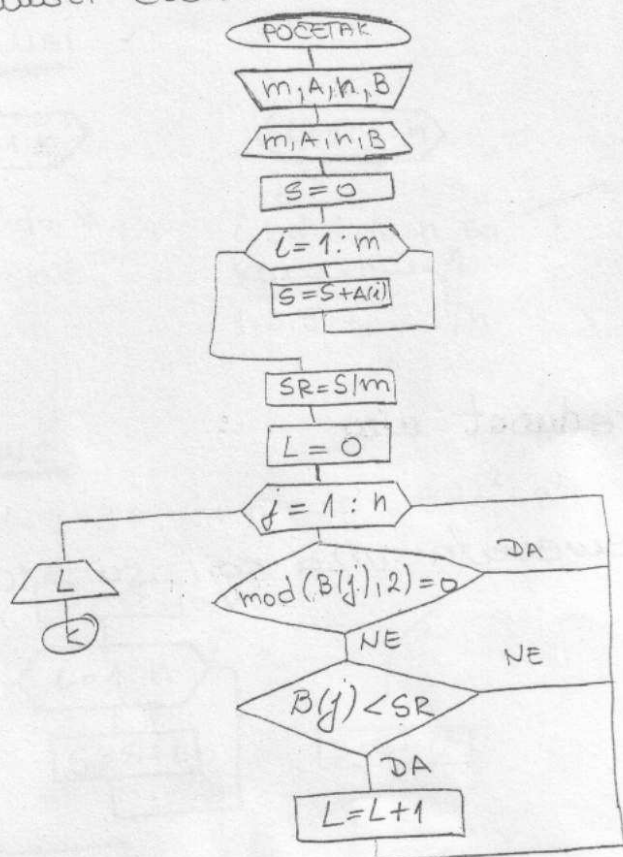 POČETAK
m, A, n, B
m, A, n, B
S=0
i=1:m
S=S+A(i)
SR=S/m
L=0
j=1:n
DA
L
mod(B(j),2)=0
K
NE
NE
B(j)<SR
DA
L=L+1